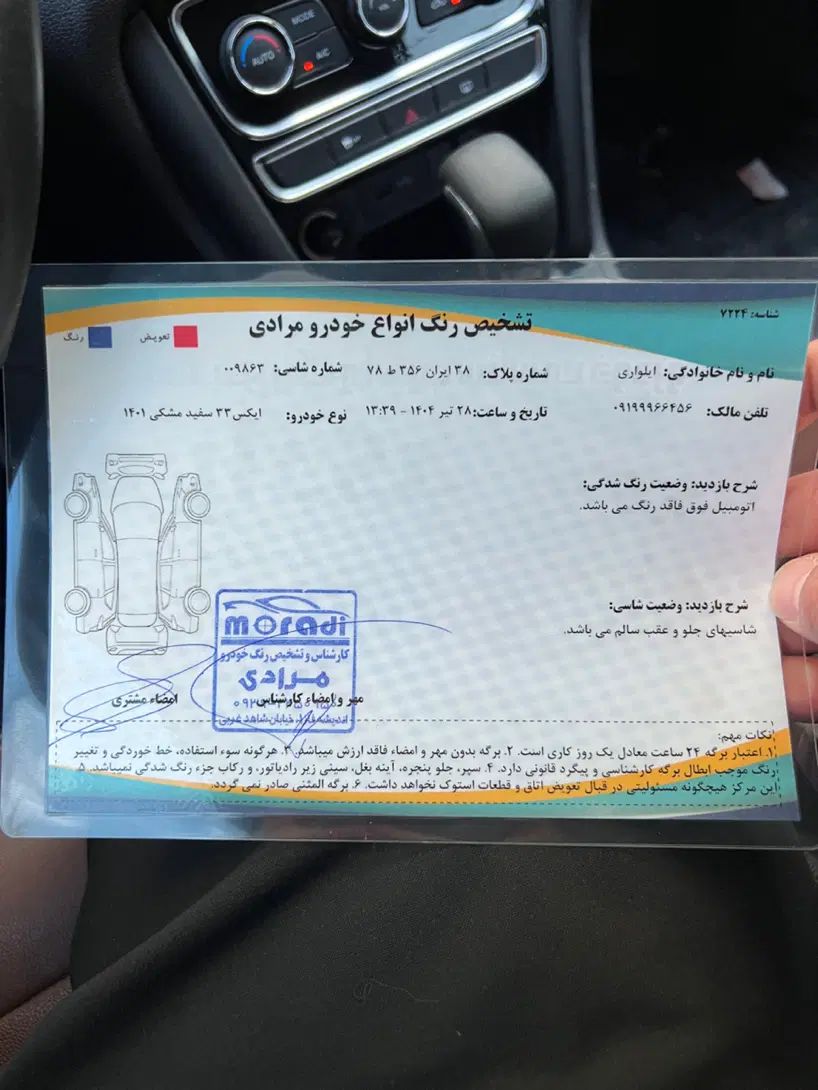 AUTO
MODE
A/C
شناسه: ۷۲۲۴
تشخیص رنگ انواع خودرو مرادی
تعویض
رنگ
نام و نام خانوادگی: ایلواری
شماره پلاک: ۳۸ ایران ۳۵۶ ط ۷۸
شماره شاسی: ۰۰۹۸۶۳
تلفن مالک: ۰۹۱۹۹۹۶۶۴۵۶
تاریخ و ساعت: ۲۸ تیر ۱۴۰۴ - ۱۳:۳۹
نوع خودرو: ایکس۳۳ سفید مشکی ۱۴۰۱
شرح بازدید: وضعیت رنگ شدگی:
اتومبیل فوق فاقد رنگ می باشد.
شرح بازدید: وضعیت شاسی:
شاسیهای جلو و عقب سالم می باشد.
moradi
کارشناس و تشخیص رنگ خودرو
مرادی
مهر و امضاء کارشناس
امضاء مشتری
اندیشه فاز ۱، خیابان شاهد غربی
نکات مهم:
۱. اعتبار برگه ۲۴ ساعت معادل یک روز کاری است. ۲. برگه بدون مهر و امضاء فاقد ارزش میباشد. ۳. هرگونه سوء استفاده، خط خوردگی و تغییر
رنگ موجب ابطال برگه کارشناسی و پیگرد قانونی دارد. ۴. سپر، جلو پنجره، آینه بغل، سینی زیر رادیاتور، و رکاب جزء رنگ شدگی نمیباشد. ۵.
این مرکز هیچگونه مسئولیتی در قبال تعویض اتاق و قطعات استوک نخواهد داشت. ۶. برگه المثنی صادر نمی گردد.